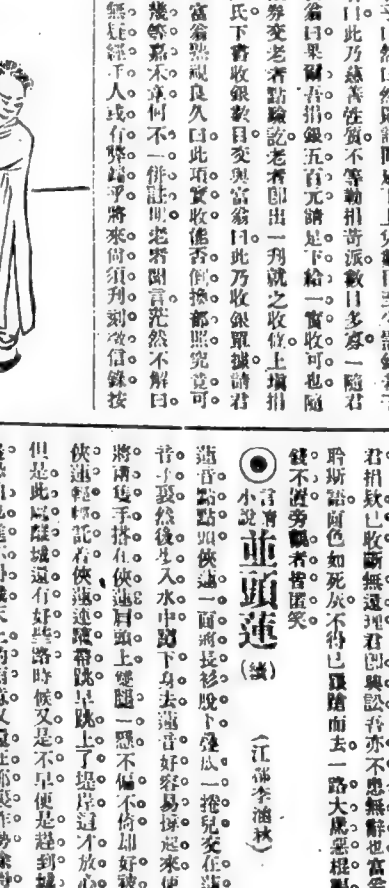 曰此乃慈善性質不等勒捐苛派數目多寡一隨君
翁曰果爾吾捐銀五百元請足下給一實收可也隨
券交老者點驗訖老者卽出一刋就之收條上塡捐
氏下書收銀數目交與富翁曰此乃收銀單據請君
富翁熟視良久曰此項實收能否倒換部照究竟可
幾等嘉禾章何不一併註明老者聞言茫然不解曰
無疑經手人或有弊竇乎將來尙須刋刻徵信錄按
君捐欵已收斷無還理君卽興訟吾亦不患無辭也富翁
聆斯語面色如死灰不得已踉蹌而去一路大罵惡棍騙
錢不置旁觀者皆匿笑
言情小說 並頭蓮（續） （江都李涵秋）
蓮音點點頭俠蓮一面將長衫脫下叠成一捲兒交在蓮
音手裏然後步入水中蹲下身去蓮音好容易撩起來便
將兩隻手搭在俠蓮肩頭上雙腿一懸不偏不倚却好被
俠蓮輕輕託着俠蓮連躥帶跳早跳上了堤岸這才放心
但是此處離城還有好些路時候又是不早便是趕到城